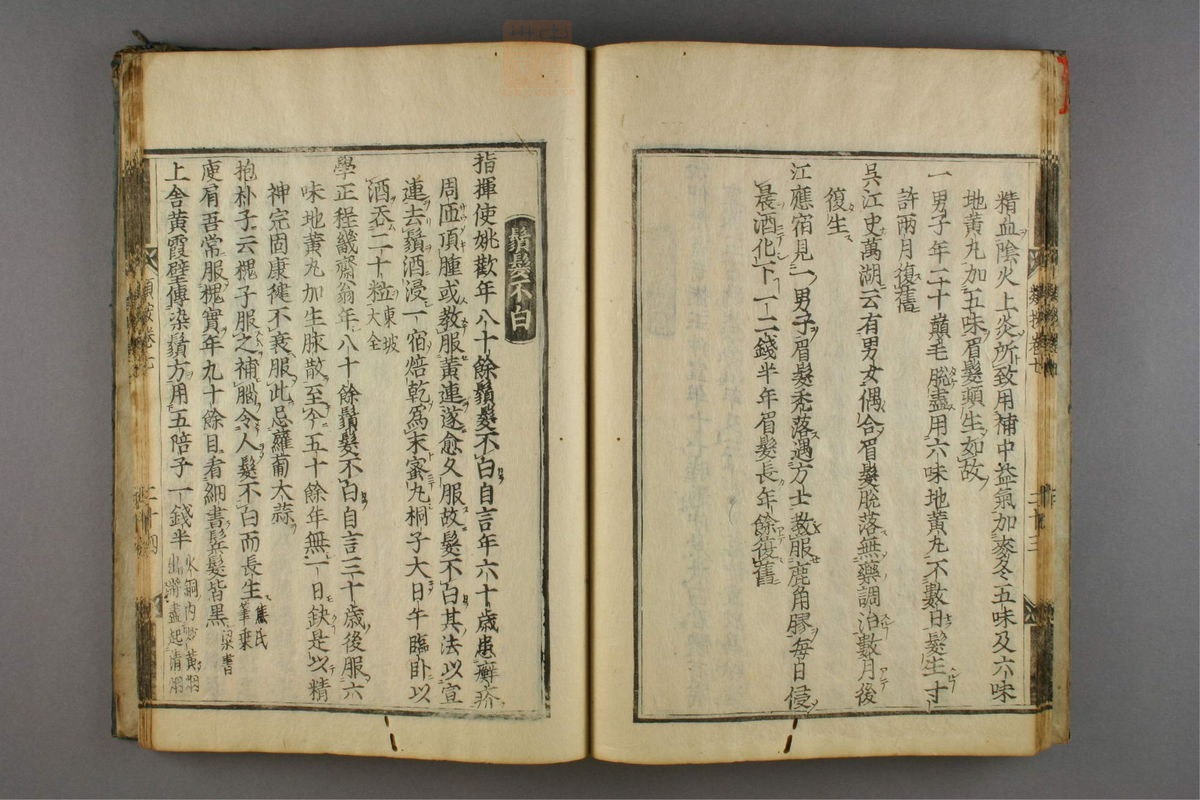 精血陰火上炎所致用補中益氣加麥冬五味及六味
地黄丸加五味眉髮頓生如故
一男子年二十巔毛脱盡用六味地黄丸不數日髮生寸
許兩月復舊
吳江史萬湖云有男女偶合眉髮脱落無藥調治數月後
復生
江應宿見一男子眉髮禿落遇方士教服鹿角膠每日侵
晨酒化下一二錢半年眉髮長年餘復舊
鬚髮不白
指揮使姚歡年八十餘鬚髮不白自言年六十歲患癬疥
周匝頂踵或教服黄連遂愈久服故髮不白其法以宣
連去鬚酒浸一宿焙乾爲末蜜丸桐子大日午臨臥以
酒吞二十粒東坡大全
學正程幾齋翁年八十餘鬚髮不白自言三十歲後服六
味地黄丸加生脉散至今五十餘年無一日缺是以精
神完固康健不衰服此忌蘿蔔大蒜
抱朴子云槐子服之補腦令人髮不白而長生
庾肩吾常服槐實年九十餘目看細書鬢髮皆黒梁書
上舍黄霞壁傳染鬚方用五陪子一錢半
二十三
二十四